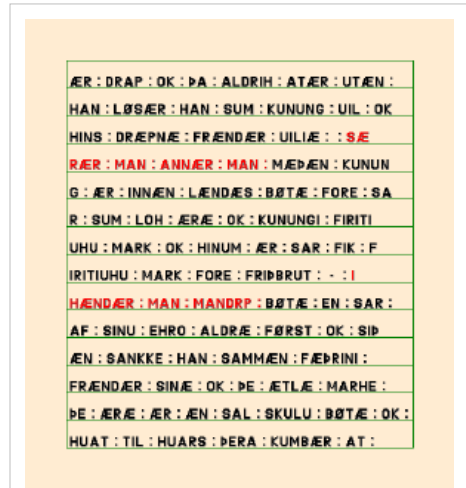 ÆR : DRAP : OK : ÞA : ALDRIH : ATÆR : UTÆN :
HAN : LØSÆR : HAN : SUM : KUNUNG : UIL : OK
HINS : DRÆPNÆ : FRÆNDÆR : UILIÆ : : SÆ
RÆR : MAN : ANNÆR : MAN : MÆÞÆN : KUNUN
G : ÆR : INNÆN : LÆNDÆS : BØTÆ : FORE : SA
R : SUM : LOH : ÆRÆ : OK : KUNUNGI : FIRITI
UHU : MARK : OK : HINUM : ÆR : SAR : FIK : F
IRITIUHU : MARK : FORE : FRIÞBRUT : - : I
HÆNDÆR : MAN : MANDRP : BØTÆ : EN : SAR :
AF : SINU : EHRO : ALDRÆ : FØRST : OK : SIÞ
ÆN : SANKKE : HAN : SAMMÆN : FÆÞRINI :
FRÆNDÆR : SINÆ : OK : ÞE : ÆTLÆ : MARHE :
ÞE : ÆRÆ : ÆR : ÆN : SAL : SKULU : BØTÆ : OK :
HUAT : TIL : HUARS : ÞERA : KUMBÆR : AT :